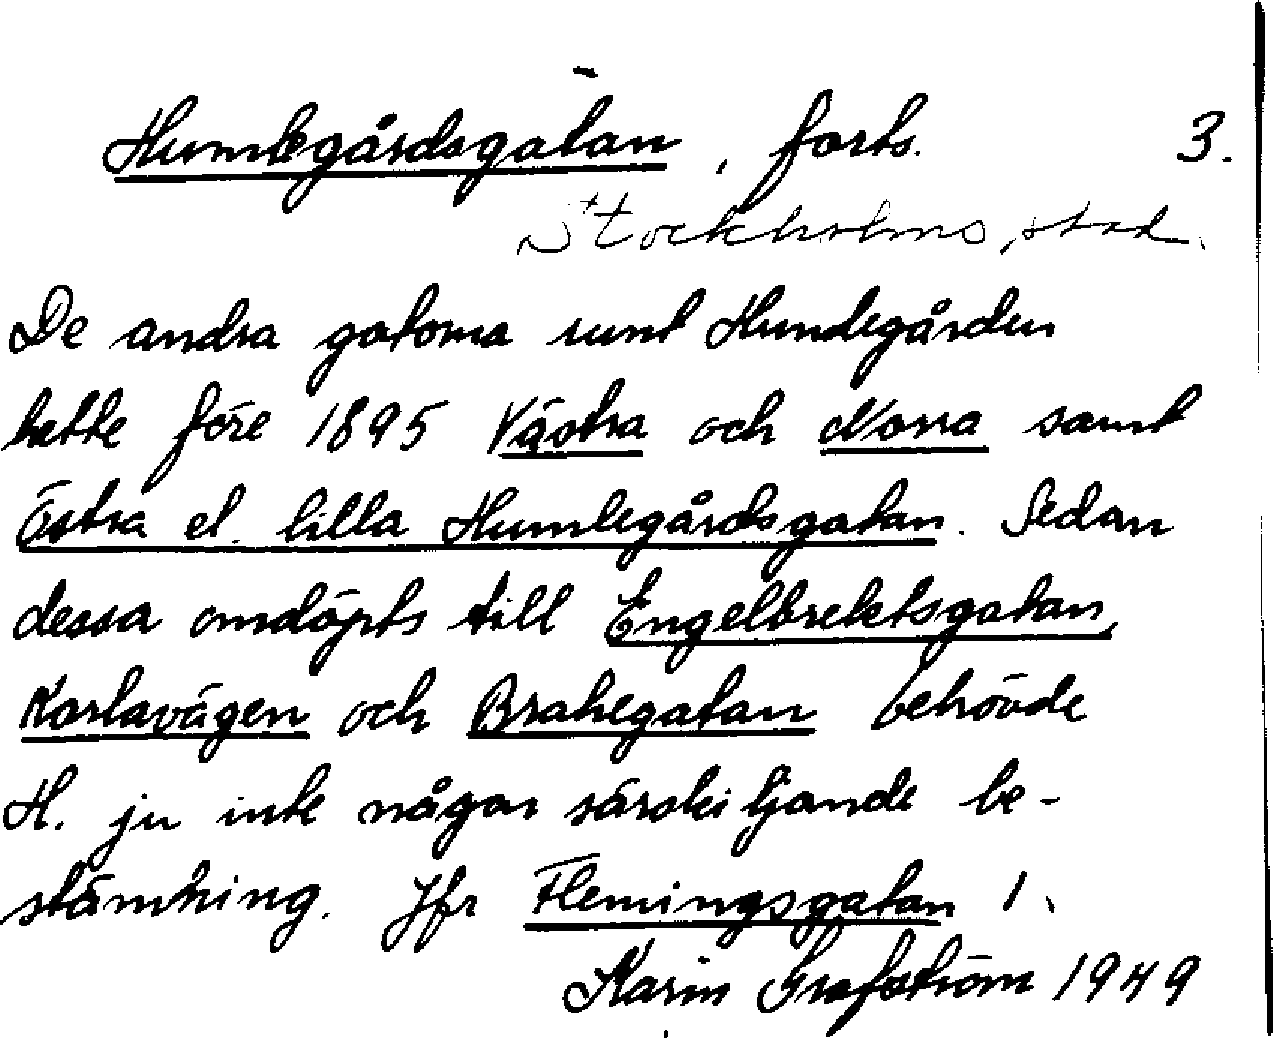 Humlegårdsgatan, forts. 3.
Stockholms stad.
De andra gatorna runt Humlegården
hette före 1895 Västra och Norra samt
Östra el. lilla Humlegårdsgatan. Sedan
dessa omdöpts till Engelbrektsgatan,
Karlavägen och Brahegatan behövde
H. ju inte någon särskiljande be-
stämning. Jfr Flemingsgatan 1.
Karin Grafström 1949